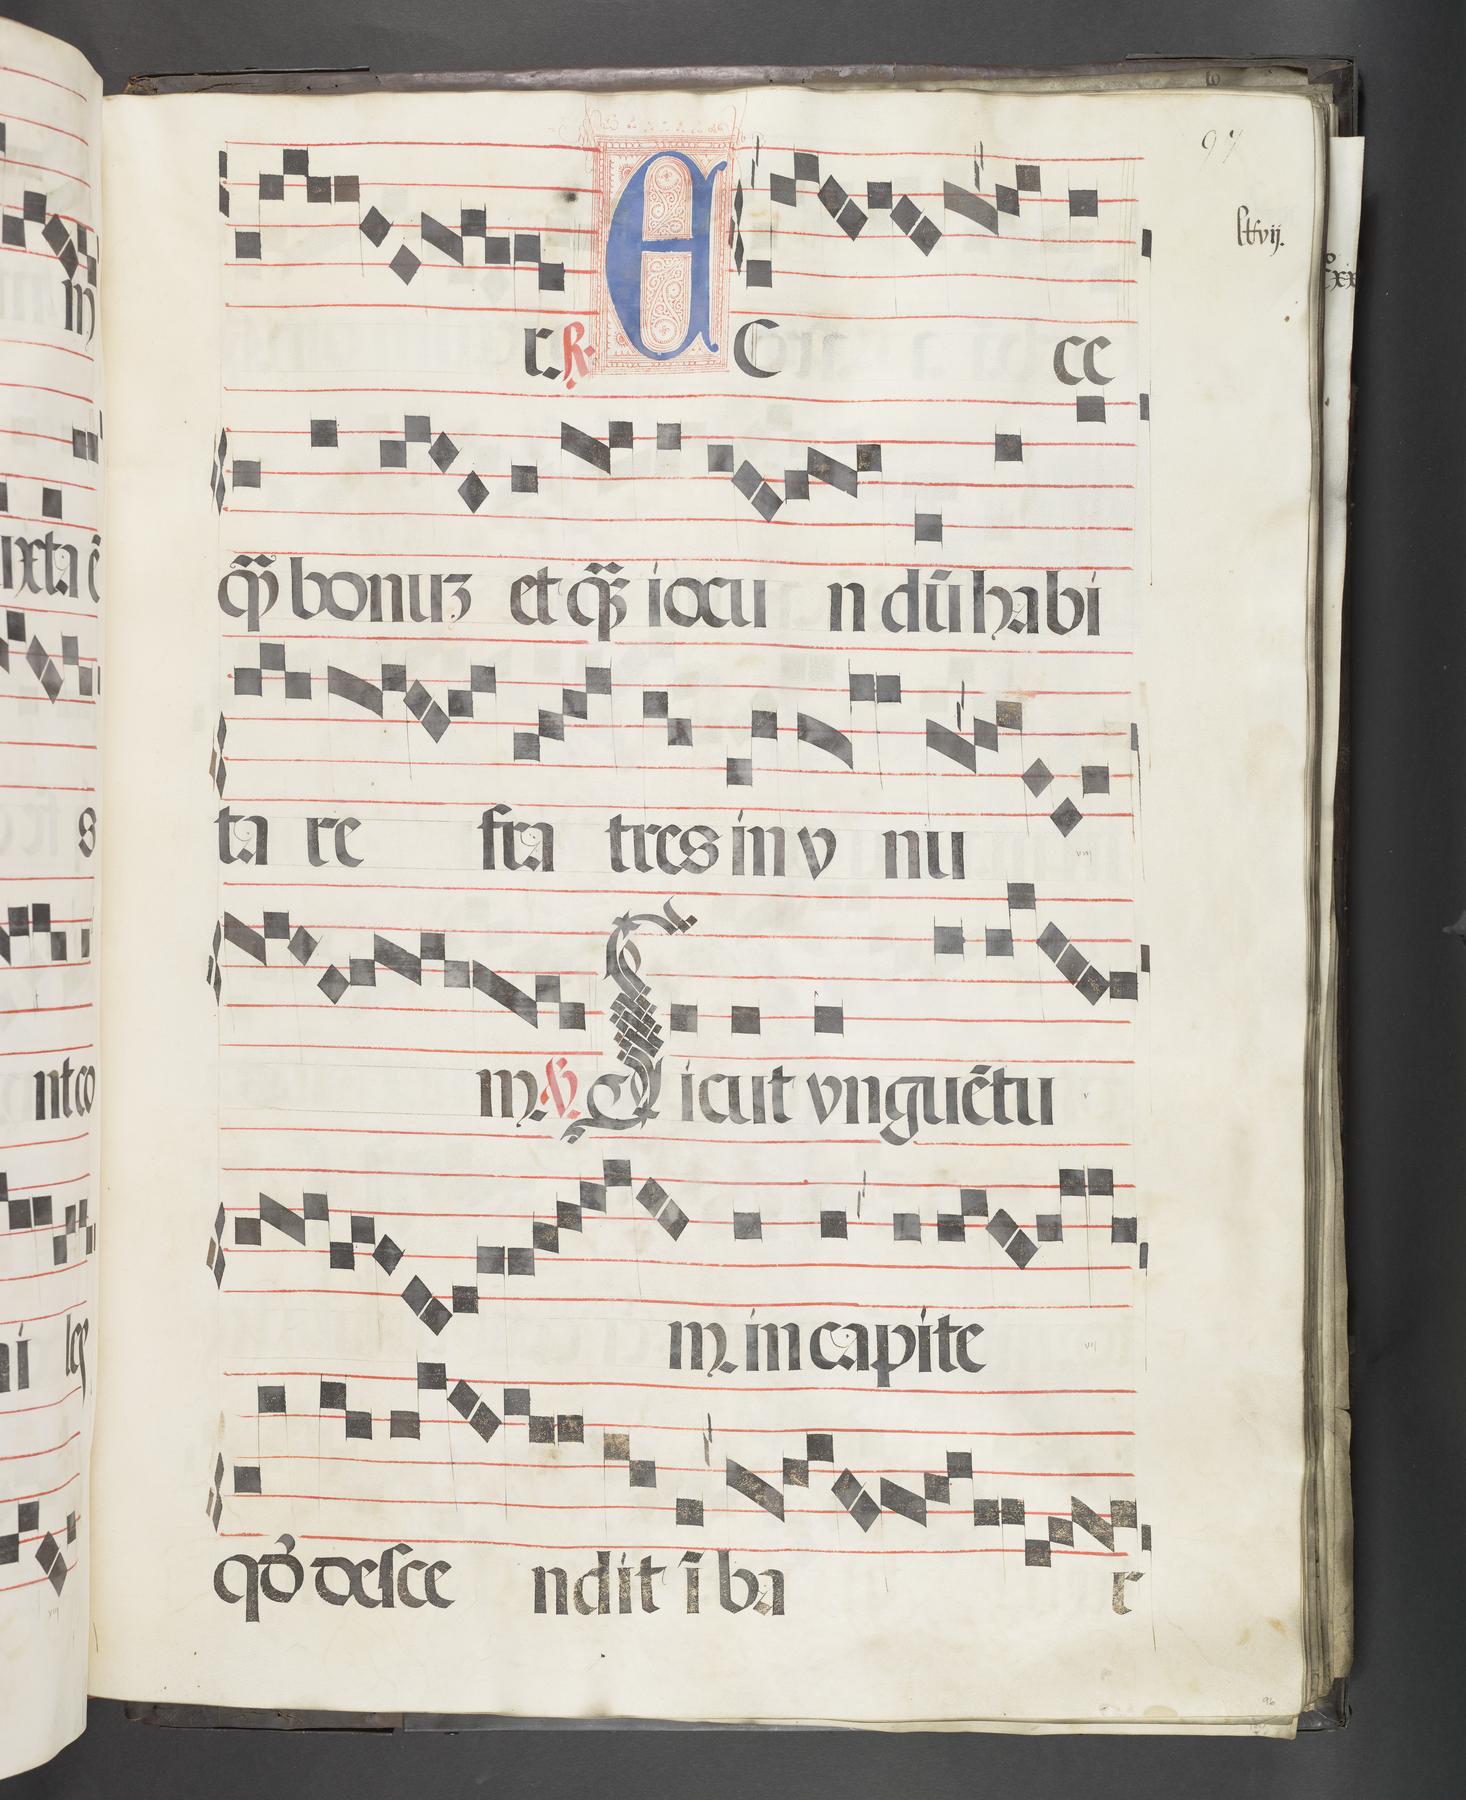 97
lxvij.
r. R. E C ce
q̃ bonuꝫ et q̃ʒ iocu n dũ habi
ta re fra tres in v nu
m. V. S icut vnguẽtu
m. in capite
qď desce ndit ĩ ba r
96
m
uxta
s
nt co
ni